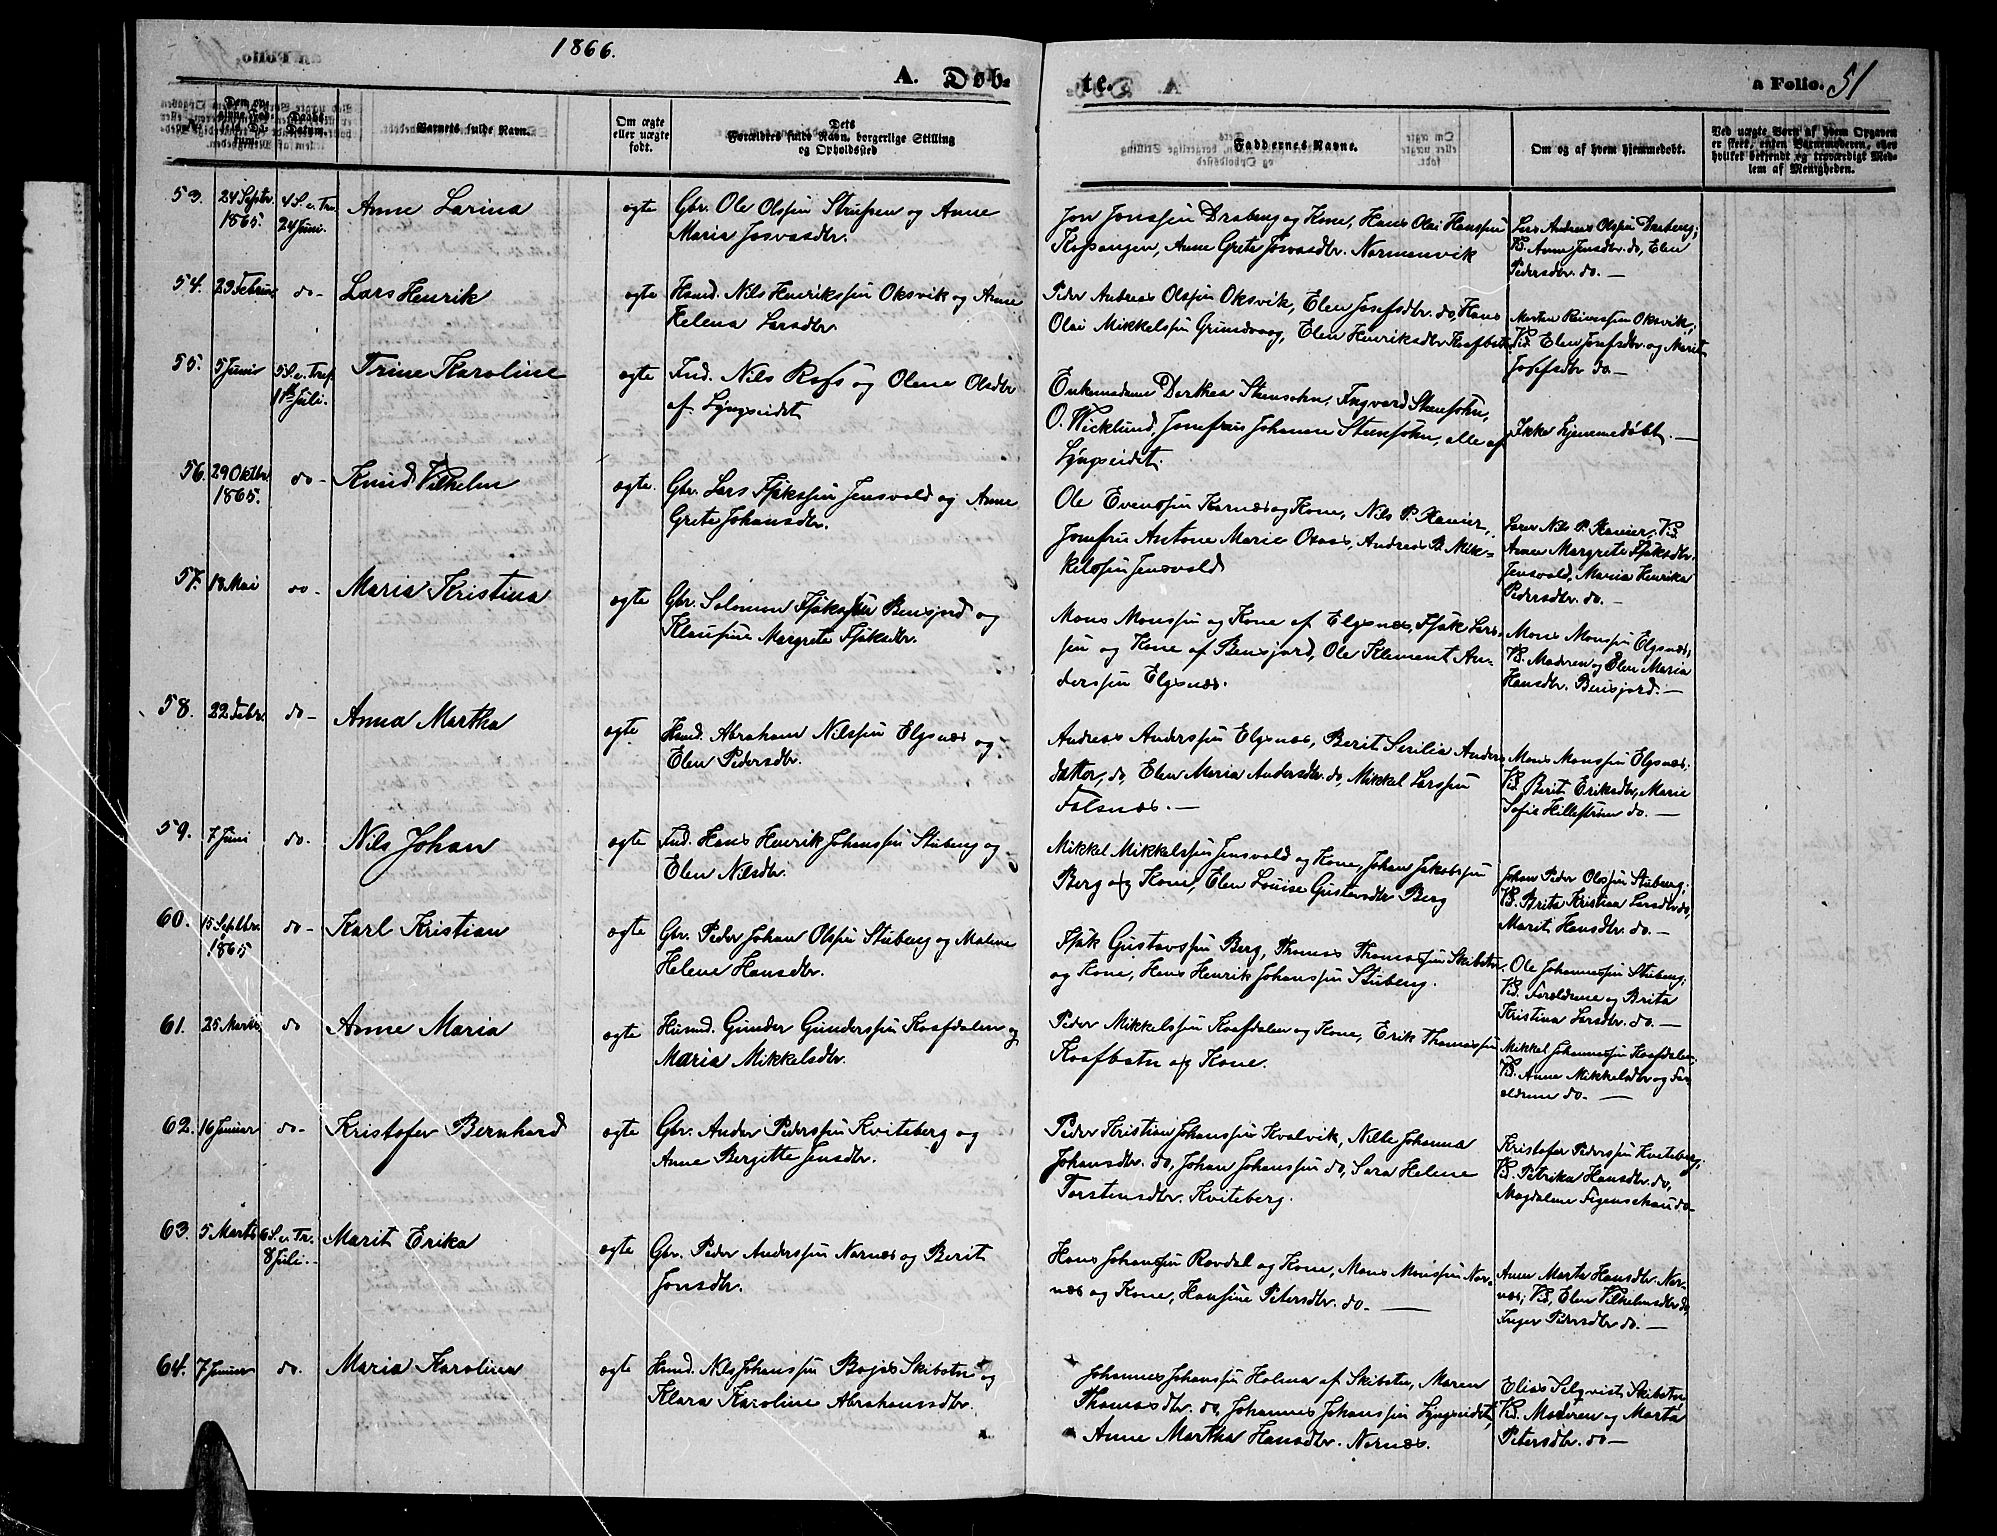 1866.
A. Døb-
te.
a Folio. 51
No.
Daabs-Datum.
Barnets fulde Navn.
Om ægte eller uægte født.
Dets
Forældres fulde Navn, borgerlige Stilling
og Opholdssted
Faddernes Navne.
Om og af hvem hjemmedøbt.
Ved uægte Børn af hvem Opgaven
er skeet, enten Barnemoderen, eller
hvilket bekjendt og troværdigt Med-
lem af Menigheden.
53. 24 Septbr. 4 S. e. Tr. Anne Larina ægte Gbr. Ole Olssøn Strupen og Anne
1865. 24 Juni. Maria Josvasdbr.
Jon Jonssøn Draberg og Kone, Hans Olai Hanssøn
Anne Grete Josvasdbr. Normanvik
Lars Andreas Olssøn Draberg;
Vid. Anne Jensdbr. do, Elen
Pedersdbr. do. —
54. do- Lars Henrik ægte Hsmd. Nils Henrikssøn Oksvik og Anne
Helena Larsdbr.
Peder Andreas Olssøn Oksvik, Elen Josefsdbr. do, Hans
Olai Mikkelssøn Grundvaag, Elen Henriksdbr. Kaafbotn
Morten Oksvik,
Vid. Elen Josefsdbr. og Marit
Josefsdbr do —
55. 5 Juni 5 S. e. Tref. Trine Karoline ægte Ind. Nils Ross og Olene Olsdbr
1ste Juli. af Lyngseidet
Enkemadame Dorthea Steensohn, Ingvard Steensohn,
O. Wicklund, Jomfru Johanne Steensohn, alle af
Lyngseidet.
Ikke hjemmedøbt. —
56. 29 Oktbr. do- Knud Vilhelm ægte. Gbr. Lars Isakssøn Jensvold og Anne
1865. Grete Johansdbr.
Ole Evenssøn Karnæs og Kone, Nils P. Xavier,
Jomfru Antone Marie Andreas B. Mik-
kelssøn Jensvold
Lærer Nils P. Xavier; Vid.
Anne Margrete Isaksdbr.
Jensvold, Maria Henrika
Pedersdbr. do. —
57. 18 Mai do- Maria Kristina ægte Gbr. Salomon Isakssøn Bensjord og
Klausine Margrete Isaksdbr.
Mons Monssøn og Kone af Elgsnæs, Isak Lars-
søn og Kone af Bensjord, Ole Klement An-
derssøn Elgsnæs.
Mons Monssøn Elgsnæs;
Vid. Moderen og Elen Maria
Hansdbr. Bensjord. —
58. 22 Febr. do- Anna Martha ægte Hsmd. Abraham Nilssøn Elgsnæs og
Elen Pedersdbr.
Andreas Anderssøn Elgsnæs, Berit Sesilia Anders
datter, do, Elen Maria Andersdbr. do, Mikkel Larssøn
Falsnæs. —
Mons Monssøn Elgsnæs;
Vid. Berit Eriksdbr, Marie
Sofie Hillestrøm do. —
59. 7 Juni do. Nils Johan ægte Ind. Hans Henrik Johanssøn Stuberg og
Elen Nilsdbr.
Mikkel Mikkelssøn Jensvold og Kone, Johan Jakobssøn
Berg og Kone, Elen Louise Gustavsdbr Berg
Johan Peder Olssøn Stuberg;
Vid. Brita Kristina Larsdbr do,
Marit Hansdbr. do. —
60. 15 Septbr. do- Karl Kristian ægte Gbr. Peder Johan Olssøn Stuberg og Malene
1865 Helene Hansdbr.
Isak Gustavssøn Berg, Thomas Thomassøn Skibotn
og Kone, Hans Henrik Johanssøn Stuberg.
Ole Johannessøn Stuberg;
Vid. Forældrene og Brita
Kristina Larsdbr. do. —
61. 25 Marts do Anne Maria ægte Husmd. Gunder Gunderssøn Kaafdalen og
Maria Mikkelsdbr.
Peder Mikkelssøn Kaafdalen og Kone, Erik Thomassøn
Kaafbotn og Kone.
Mikkel Johannessøn Kaafdalen;
Vid. Anne Mikkelsdbr og For-
ældrene do. —
62. 16 Januar do- Kristofer Bernhard ægte Gbr. Ander Pederssøn Kviteberg og
Anne Bergitte Jensdbr.
Peder Kristian Johanssøn Kvalvik, Nille Johanna
Johansdbr. do, Johan Johanssøn do, Sara Helene
Torstensdbr. Kviteberg.
Kristofer Pederssøn Kviteberg;
Vid. Petrika Hansdbr. do,
Magdalene Figenschau do-
63. 5 Marts 6 S. e. Tr. Marit Erika ægte Gbr. Peder Anderssøn Nornæs og Berit
8 Juli. Jonsdbr.
Hans Johanssøn Rovdal og Kone, Mons Monssøn Nor-
næs og Kone, Hansine Petersdbr. do. —
Anne Marta Hansdbr. Nor-
næs; Vid, Elen Vilhelmsdbr do,
Inger Pedersdbr do. —
64. 7 Januar do. Maria Karolina ægte Hsmd. Nils Johanssøn Skibotn og
Klara Karoline Abrahamsdbr.
Johannes Johanssøn Holma af Skibotn, Maren
Thomasdbr. do, Johannes Johanssøn Lyngseidet,
Anne Martha Hansdbr. Nornæs.
Elias Selqvist, Skibotn;
Vid. Moderen og Marta
Petersdbr. do —